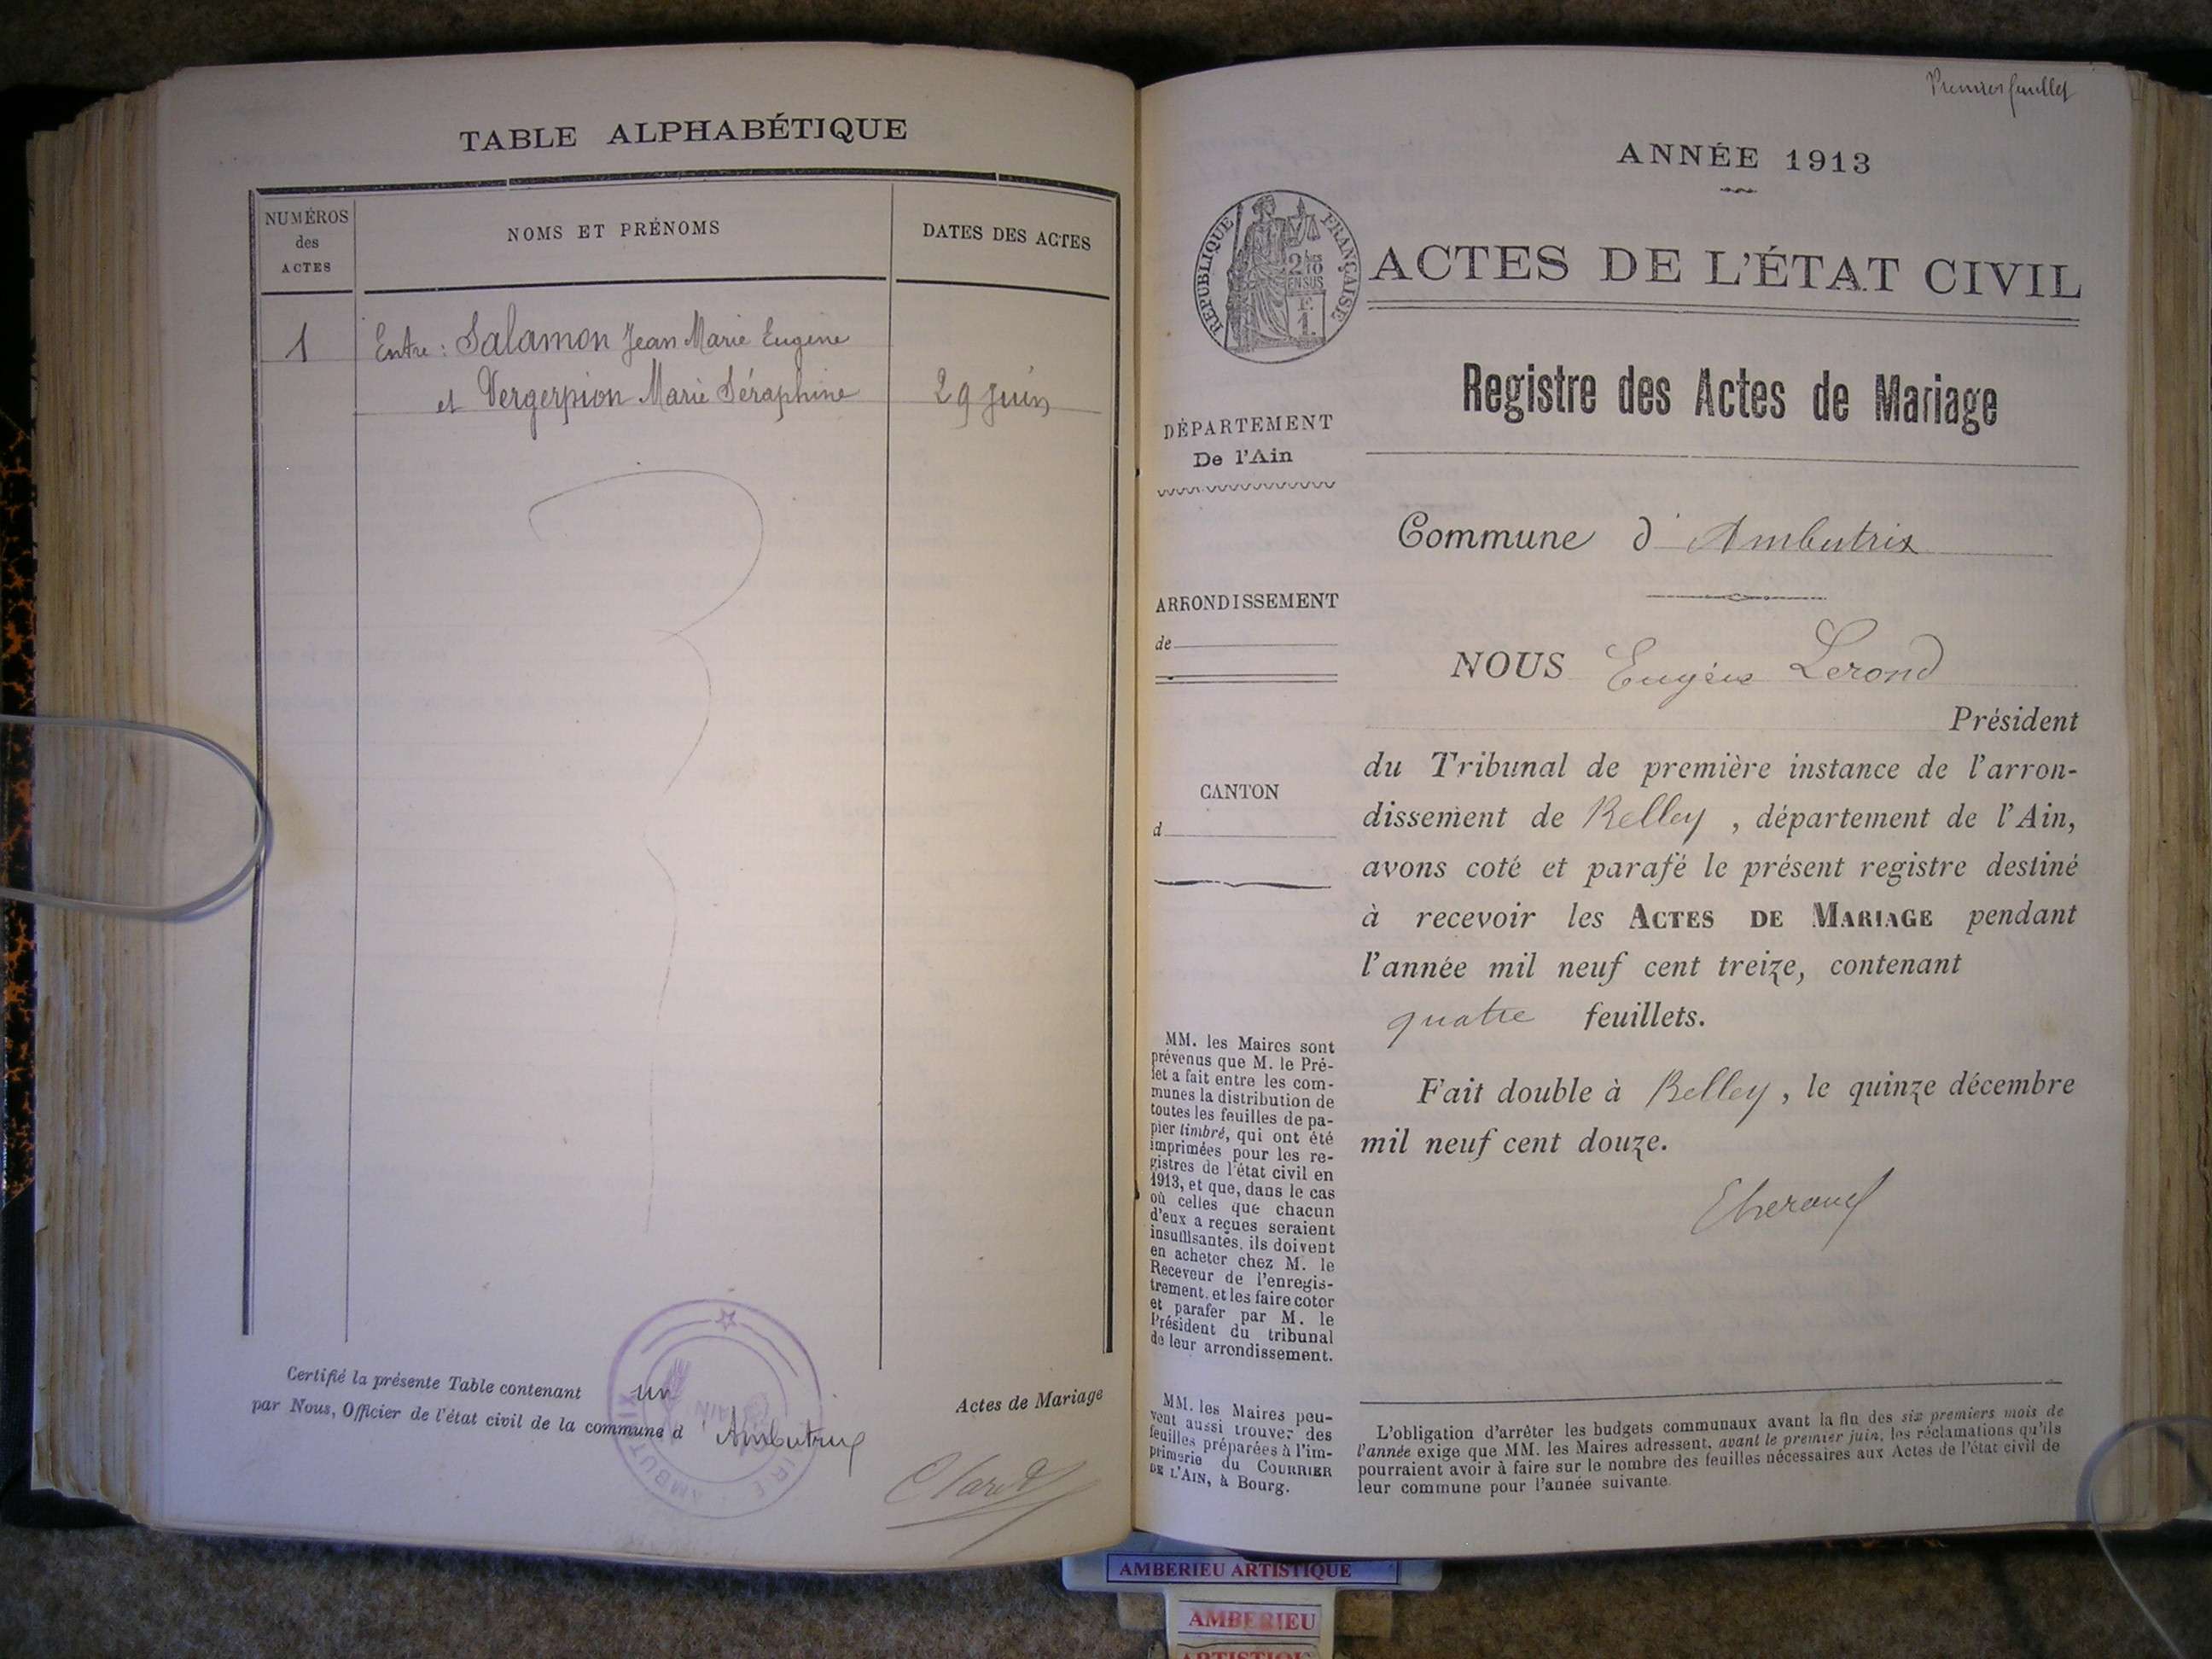 TABLE ALPHABÉTIQUE
NUMÉROS
des
ACTES
NOMS ET PRÉNOMS
DATES DES ACTES
1
Entre : Salamon Jean Marie Eugène
et Vergerpion Marie Séraphine
29 Juin
Certifié la présente Table contenant un Actes de Mariage
par Nous, Officier de l'état civil de la commune d'Ambutrix
Premier feuillet
ANNÉE 1913
RÉPUBLIQUE FRANÇAISE
2/10
EN SUS
F.
1.
ACTES DE L'ÉTAT CIVIL
Registre des Actes de Mariage
DÉPARTEMENT
De l'Ain
ARRONDISSEMENT
de
CANTON
d
Commune d'Ambutrix
NOUS Eugène Lerond
Président
du Tribunal de première instance de l'arron-
dissement de Belley, département de l'Ain,
avons coté et parafé le présent registre destiné
à recevoir les ACTES DE MARIAGE pendant
l'année mil neuf cent treize, contenant
quatre feuillets.
Fait double à Belley, le quinze décembre
mil neuf cent douze.
MM. les Maires sont
prévenus que M. le Pré-
fet a fait entre les com-
munes la distribution de
toutes les feuilles de pa-
pier timbré, qui ont été
imprimées pour les re-
gistres de l'état civil en
1913, et que, dans le cas
où celles que chacun
d'eux a reçues seraient
insuffisantes, ils doivent
en acheter chez M. le
Receveur de l'enregis-
trement, et les faire coter
et parafer par M. le
Président du tribunal
de leur arrondissement.
MM. les Maires peu-
vent aussi trouver des
feuilles préparées à l'im-
primerie du COURRIER
DE L'AIN, à Bourg.
L'obligation d'arrêter les budgets communaux avant la fin des six premiers mois de
l'année exige que MM. les Maires adressent, avant le premier juin, les réclamations qu'ils
pourraient avoir à faire sur le nombre des feuilles nécessaires aux Actes de l'état civil de
leur commune pour l'année suivante.
AMBERIEU ARTISTIQUE
AMBERIEU